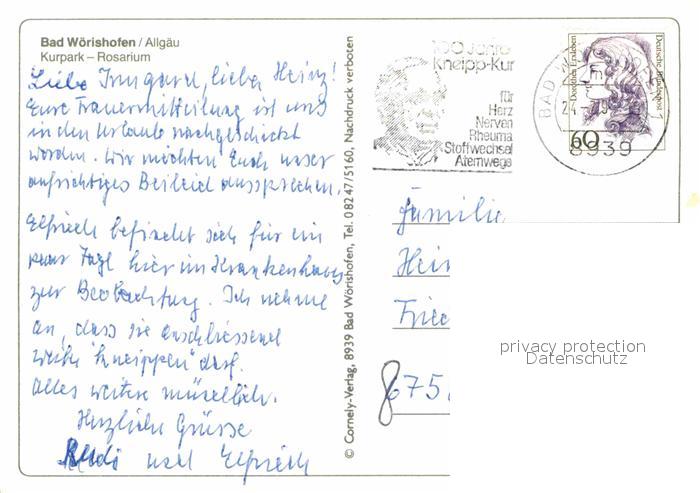 Bad Wörishofen / Allgäu
Kurpark – Rosarium
Liebe Irmgard, lieber Heinz!
Eure Trauermitteilung ist uns
in den Urlaub nachgeschickt
worden. Wir möchten Euch unser
aufrichtiges Beileid aussprechen.
Elfriede befindet sich für ein
paar Tage hier im Krankenhaus
zur Beobachtung. Ich nehme
an, dass sie anschliessend
weiter "kneippen" darf.
Alles weitere mündlich.
Herzliche Grüsse
Rudi und Elfriede
© Cornely-Verlag, 8939 Bad Wörishofen, Tel. 08247/5160, Nachdruck verboten
100 Jahre
Kneipp-Kur
für
Herz
Nerven
Rheuma
Stoffwechsel
Atemwege
BAD W
8939
Dorothea Erxleben
Deutsche Bundespost
60
Familie
Hein
Fried
675
privacy protection
Datenschutz